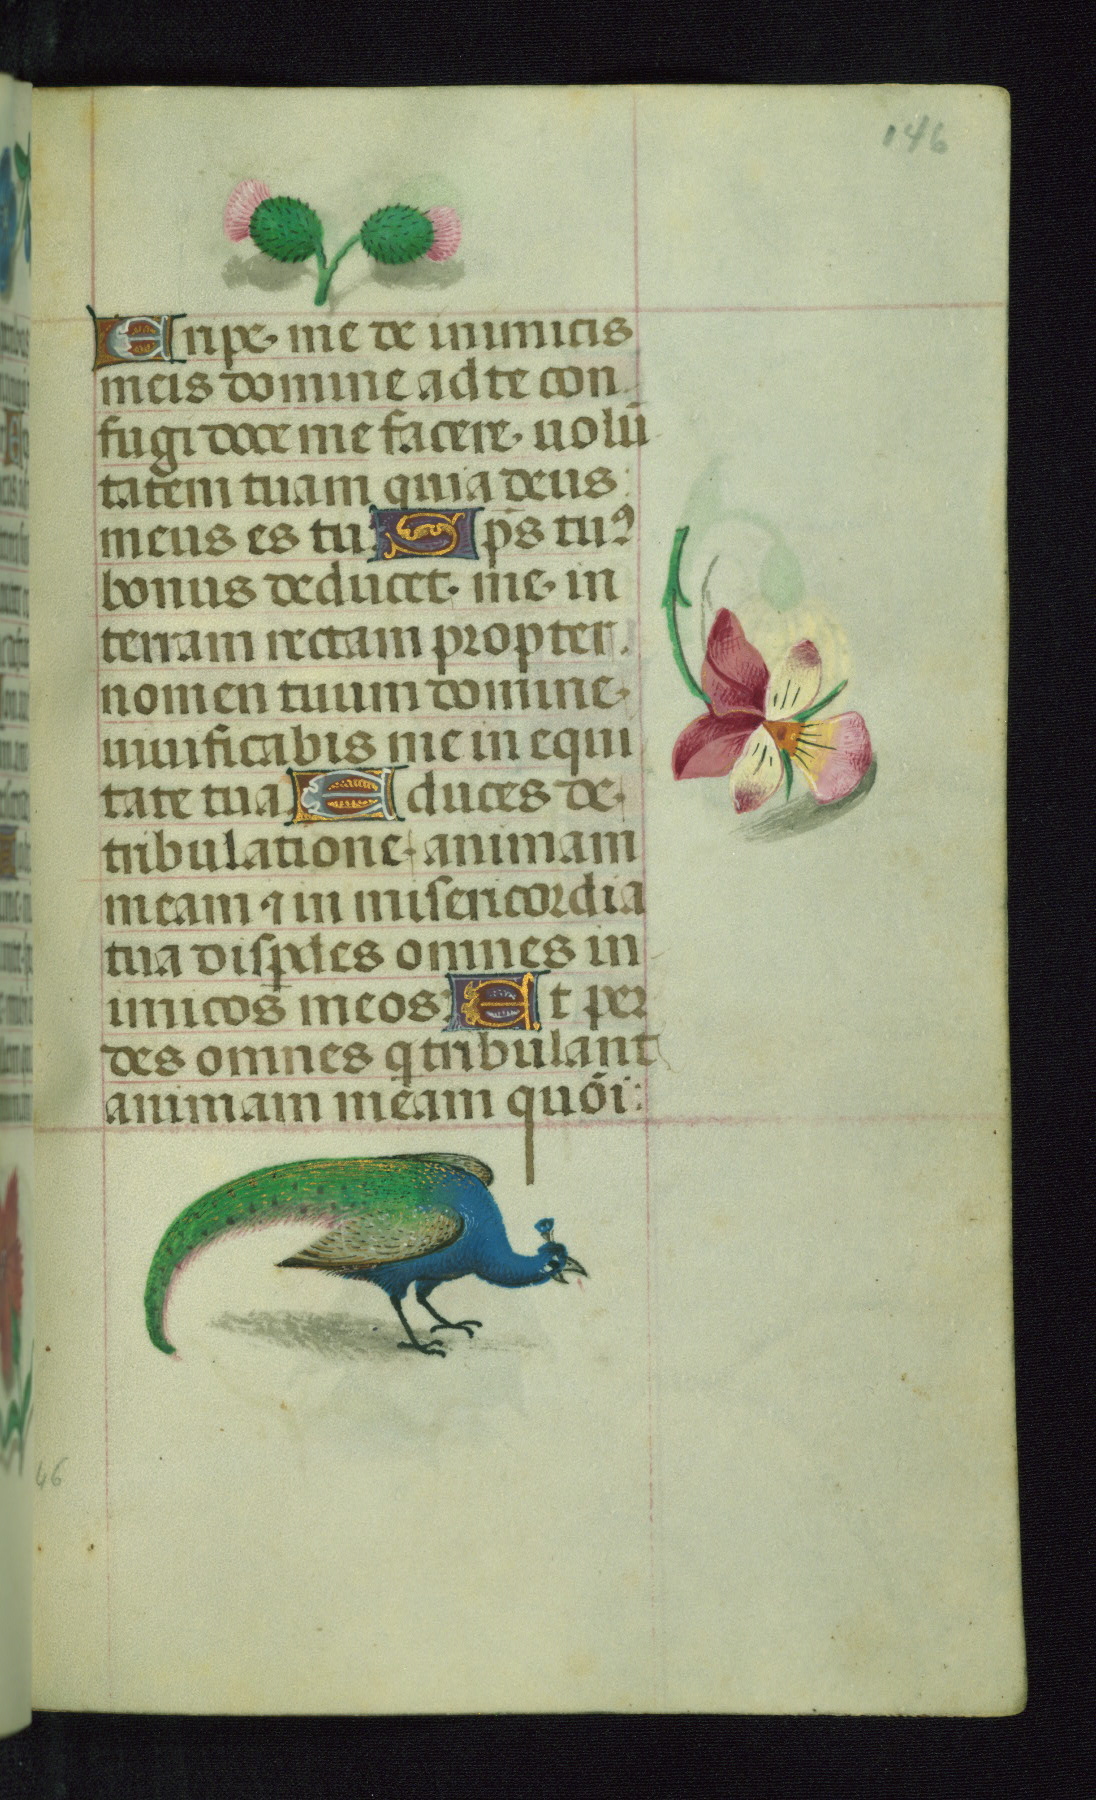 146
Eripe me de inimicis
meis domine ad te con
fugi doce me facere uolū
tatem tuam quia deus
meus es tu Sp̄s tuꝰ
bonus deducet me in
terram rectam propter
nomen tuum domine
uiuificabis me in equi
tate tua Educes de
tribulatione animam
meam ⁊ in misericordia
tua disꝑdes omnes in
imicos meos Et per
des omnes q tribulant
animam meam quō̄i
46